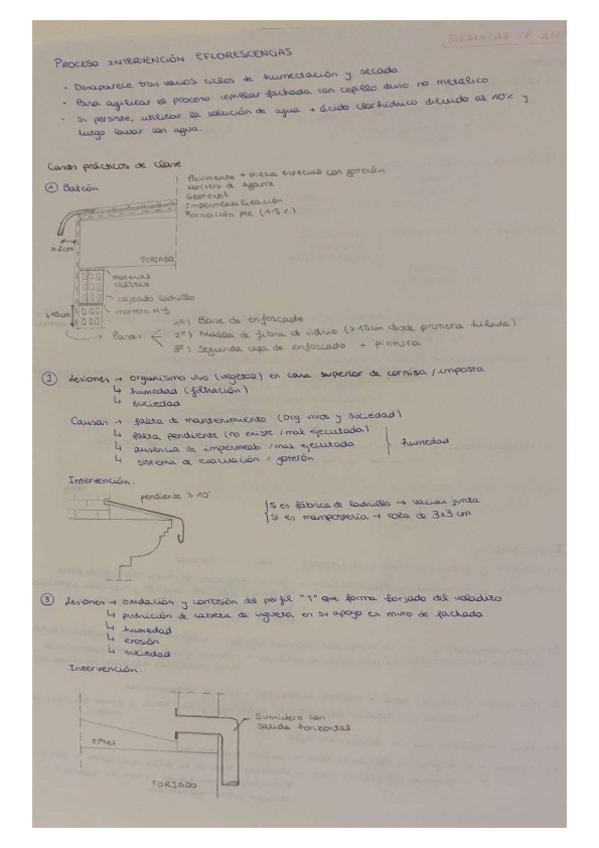 PROCESO INTERVENCIÓN EFLORESCENCIAS
- Desaparece tras varios ciclos de humectación y secado.
- Para agilizar el proceso cepillar fachada con cepillo duro no metálico
- Si persiste, utilizar la solución de agua + ácido clorhídrico diluido al 10% y
luego lavar con agua.
Casos prácticos de clase
① Balcón
Pavimento + pieza especial con goterón
Mortero de agarre
Geotextil
Impermeabilización
Formación pte (1-5%)
FORJADO
material
elástico
cajeado ladrillo
mortero M-5
≥15cm
→ Pasos
1º) Base de enfoscado
2º) Malla de fibra de vidrio (≥15cm desde primera hilada)
3º) Segunda capa de enfoscado + pintura
② Lesiones → organismo vivo (vegetal) en cara superior de cornisa / imposta
↳ humedad (filtración)
↳ suciedad
Causas → falta de mantenimiento (org. vivos y suciedad)
↳ falta pendiente (no existe / mal ejecutada)
↳ ausencia de impermeab. / mal ejecutada
↳ sistema de evacuación = goterón
humedad
Intervención:
pendiente ≥ 10º
Si es fábrica de ladrillo → vaciar junta
Si es mampostería → roza de 3x3 cm
③ Lesiones → oxidación y corrosión del perfil "T" que forma forjado del voladizo
↳ pudrición de cabeza de vigueta, en su apoyo en muro de fachada
↳ humedad
↳ erosión
↳ suciedad
Intervención:
Sumidero con
salida horizontal
FORJADO